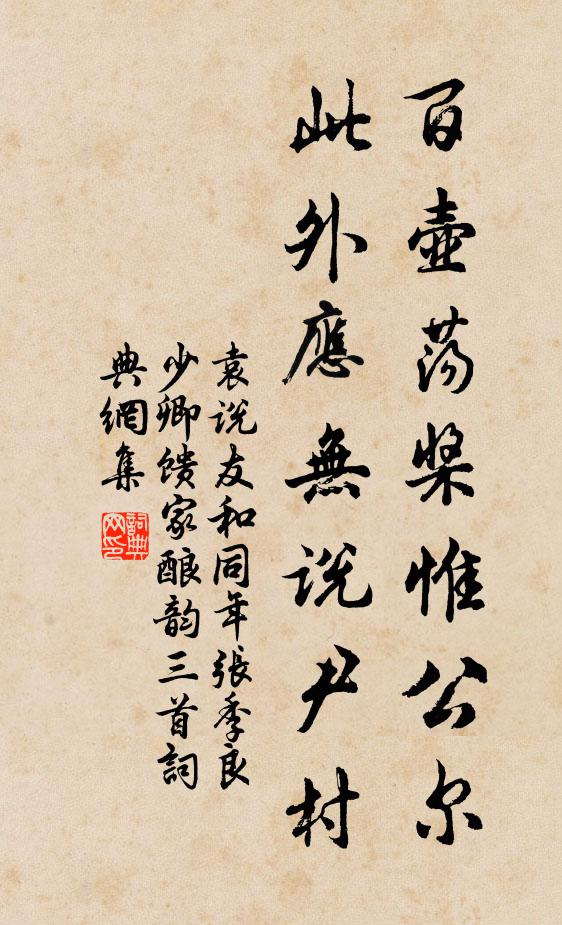 百壺荡桨惟公尔
此外應無说尹村
袁说友和同年張季良
少卿馈家酿韵三首詞
典網集
詞典网印